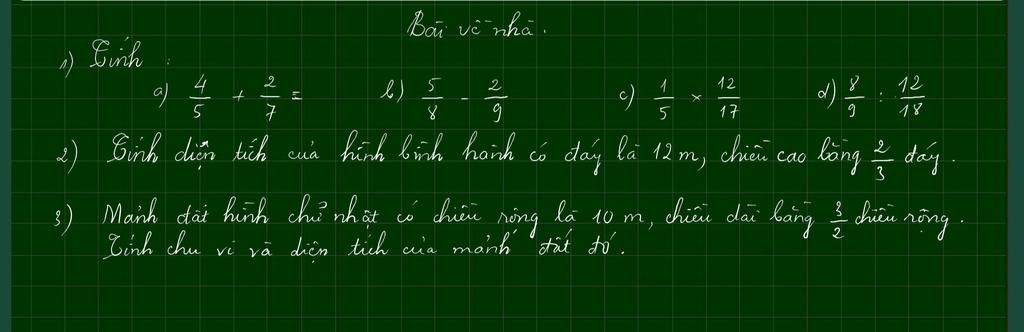 Bài về nhà.
1) Tính :
a) 4/5 + 2/7 = b) 5/8 - 2/9 c) 1/5 × 12/17 d) 8/9 : 12/18
2) Tính diện tích của hình bình hành có đáy là 12 m, chiều cao bằng 2/3 đáy.
3) Mảnh đất hình chữ nhật có chiều rộng là 10 m, chiều dài bằng 3/2 chiều rộng.
Tính chu vi và diện tích của mảnh đất đó.